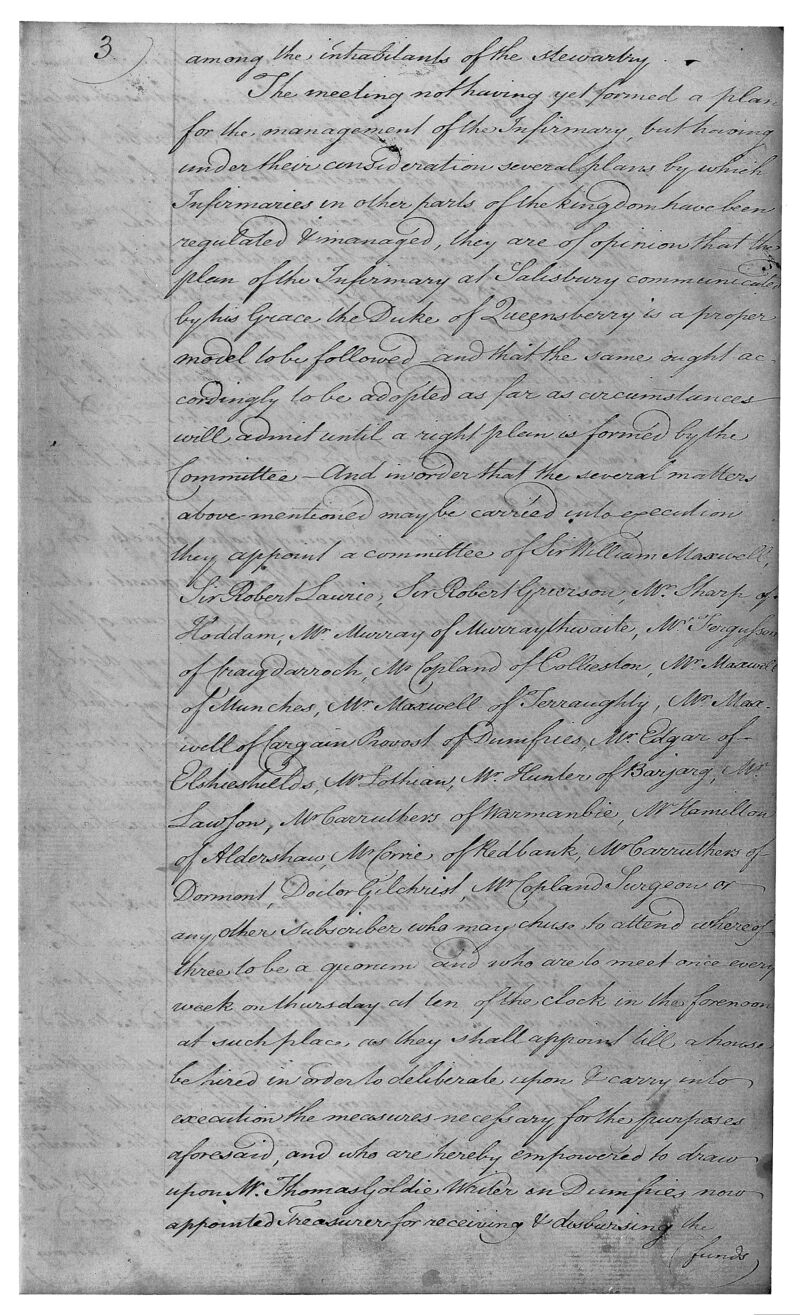 3.
among the inhabitants of the stewartry.
The meeting not having yet formed a plan
for the management of the Infirmary, but having
under their consideration several plans by which
Infirmaries in other parts of the kingdom have been
regulated & managed, they are of opinion that the
plan of the Infirmary at Salisbury communicated
by his Grace the Duke of Queensberry is a proper
model to be followed - and that the same ought ac-
cordingly to be adopted as far as circumstances
will admit until a right plan is formed by the
Committee - And in order that the several matters
above mentioned may be carried into execution
they appoint a committee of Sir William Maxwell,
Sir Robert Laurie, Sir Robert Grierson, Mr. Sharp of
Hoddam, Mr Murray of Murraythwaite, Mr. Fergusson
of Craigdarroch, Mr Copland of Collieston, Mr. Maxwell
of Munches, Mr. Maxwell of Terraughty, Mr. Max-
well of Cargain Provost of Dumfries, Mr. Edgar of
Elshieshields, Mr Lothian, Mr. Hunter of Barjarg, Mr.
Lawson, Mr Carruthers of Warmanbie, Mr Hamilton
of Aldershaw, Mr Corrie of Redbank, Mr Carruthers of
Dormont, Doctor Gilchrist Mr Copland Surgeon or
any other subscriber who may chuse to attend whereof
three to be a quorum and who are to meet once every
week on thursday at ten of the clock in the forenoon
at such place as they shall appoint till a house
be hired in order to deliberate upon & carry into
execution the measures necessary for the purposes
aforesaid, and who are hereby empowered to draw
upon Mr. Thomas Goldie Writer in Dumfries now
appointed Treasurer for receiving & disbursing the
funds